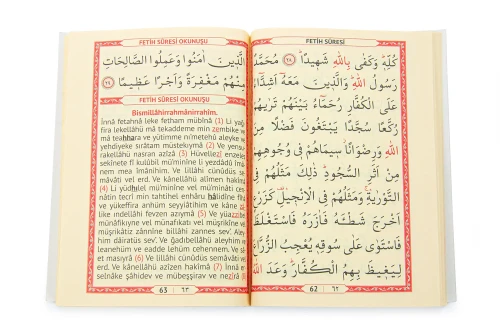 FETİH SÛRESİ
كُلِّهٖ وَكَفٰى بِاللّٰهِ شَهٖيدًا ﴿٢٨﴾ مُحَمَّدٌ
رَسُولُ اللّٰهِ وَالَّذٖينَ مَعَهُٓ اَشِدَّٓاءُ
عَلَى الْكُفَّارِ رُحَمَٓاءُ بَيْنَهُمْ تَرٰيهُمْ
رُكَّعًا سُجَّدًا يَبْتَغُونَ فَضْلًا مِنَ
اللّٰهِ وَرِضْوَانًا سٖيمَاهُمْ فٖي وُجُوهِهِمْ
مِنْ اَثَرِ السُّجُودِ ذٰلِكَ مَثَلُهُمْ فِي
التَّوْرٰيةِ وَمَثَلُهُمْ فِي الْاِنْجٖيلِ كَزَرْعٍ
اَخْرَجَ شَطْـَٔهُ فَاٰزَرَهُ فَاسْتَغْلَظَ
فَاسْتَوٰى عَلٰى سُوقِهٖ يُعْجِبُ الزُّرَّاعَ
لِيَغٖيظَ بِهِمُ الْكُفَّارَ وَعَدَ اللّٰهُ
62 ٦٢
FETİH SÛRESİ OKUNUŞU
الَّذٖينَ اٰمَنُوا وَعَمِلُوا الصَّالِحَاتِ
مِنْهُمْ مَغْفِرَةً وَاَجْرًا عَظٖيمًا ﴿٢٩﴾
FETİH SÛRESİ OKUNUŞU
Bismillâhirrahmânirrahîm.
İnnâ fetahnâ leke fetham mubînâ (1) Li yağ
fira lekellâhü mâ tekaddeme min zembike ve
mâ teahhara ve yütimme ni'metehû aleyke
yehdiyeke sırâtam müstekıymâ (2) Ve yensu
rakellâhü nasran azîzâ (3) Hüvellezî enzeles
sekînete fî kulûbil mü'minîne li yezdâdû îmâ
nem mea îmânihim. Ve lillâhi cünûdüs se
mâvâti vel erd. Ve kânellâhü alîmen hakîmâ
(4) Li yüdhilel mü'minîne vel mü'minâti cen
nâtin tecrî min tahtihel enhâru hâlidîne fîhâ
ve yükeffira anhüm seyyiâtihim ve kâne zâ
like ındellâhi fevzen azıymâ (5) Ve yüazzibel
münâfikıyne vel münâfikati vel müşrikîne vel
müşrikâtiz zânnîne billâhi zannes sev'. Aley
him dâiratüs sev'. Ve ğadıbellâhü aleyhim ve
leanehüm ve eadde lehüm cehennem. Ve sâe
et masıyrâ (6) Ve lillâhi cünûdüs semâvâti vel
erd. Ve kânellâhü azîzen hakîmâ (7) İnnâ er
selnâke şâhidev ve mübeşşirav ve nezîrâ
63 ٦٣